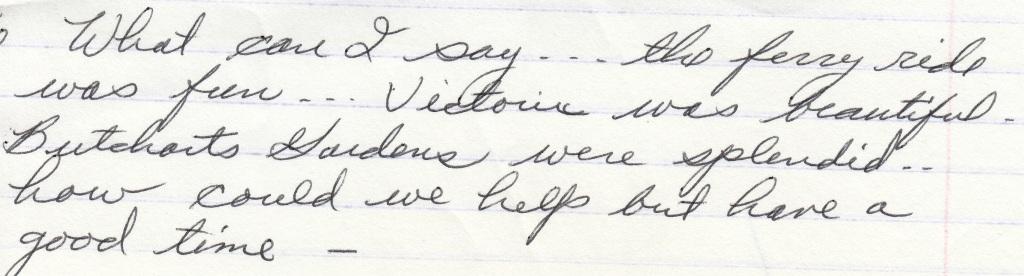 What can I say... the ferry ride
was fun... Victoria was beautiful.
Butcharts Gardens were splendid..
how could we help but have a
good time –